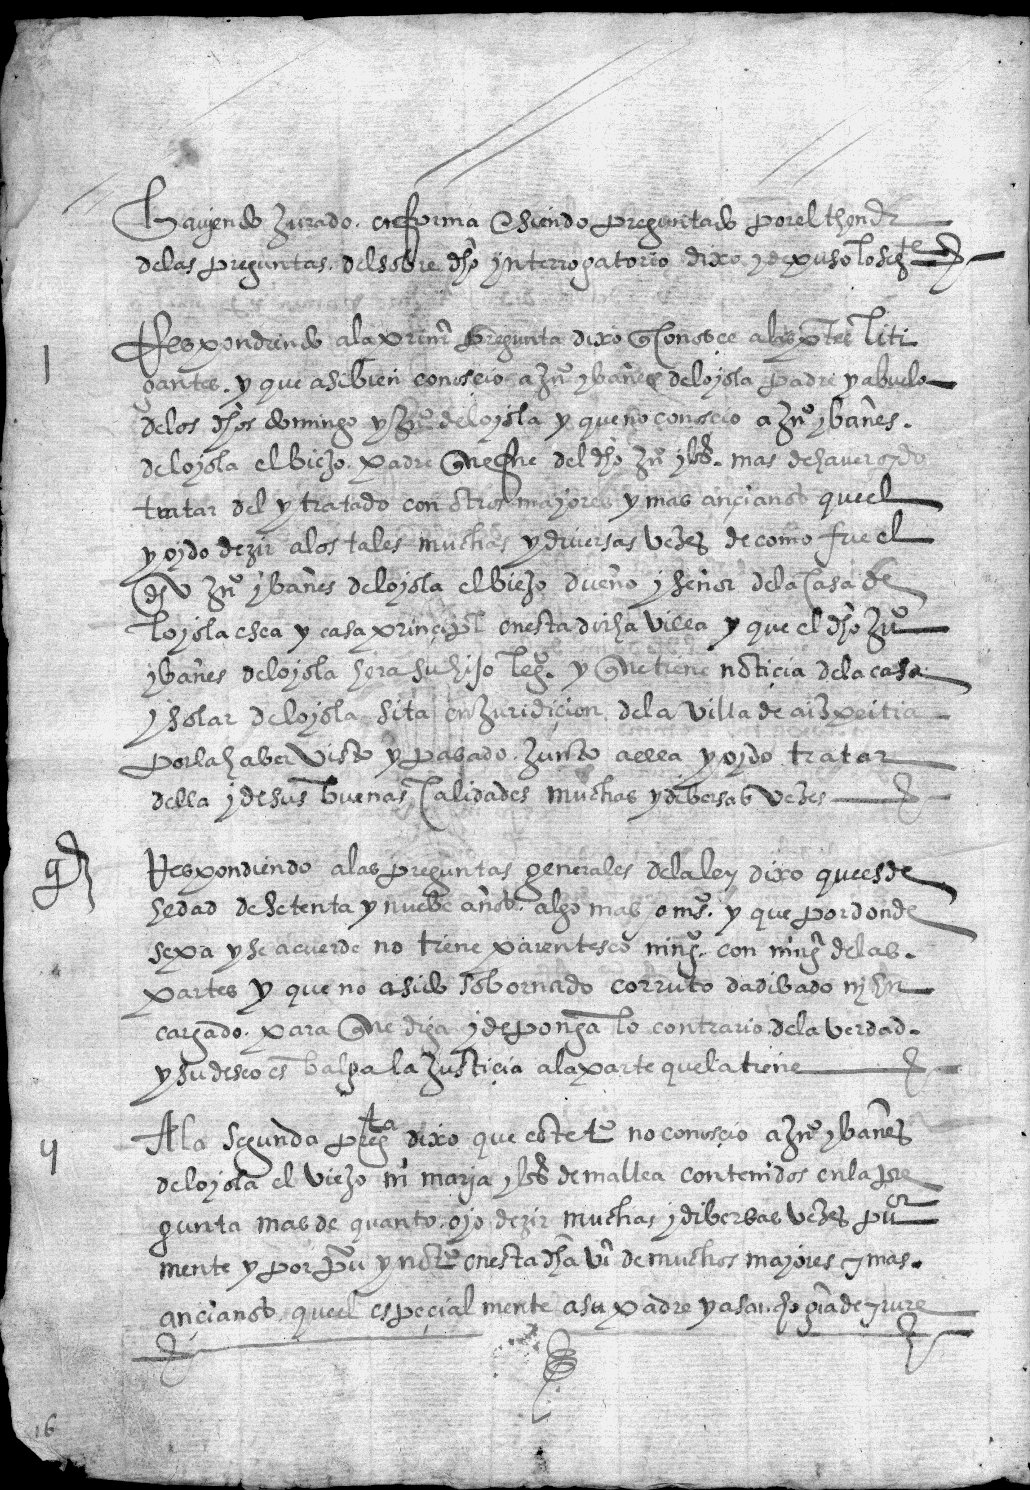 haviendo Jurado en forma e siendo preguntado por el thenor
de las preguntas del sobre dho ynterrogatorio dixo y depuso lo segte
1
Respondiendo a la primr pregunta dixo q conosce a las ptes liti
gantes. y que asibien conoscio a Jno ybañes de loyola padre y abuelo
de los dhos domingo y Jno de loyola y que no conoscio a Jno ybañes.
de loyola el biejo. padre que fue del dho Jno ybs. mas de haver oydo
tratar del y tratado con otros mayores y mas ançianos que el
y oydo dezir a los tales muchas y diversas vezes de como fue el
dho Jno ybañes de loyola el biejo dueño y señor de la Casa de
loyola esea y casa prinçipl en esta dicha villa y que el dho Jno
ybañes de loyola hera su hijo legmo. y que tiene noticia de la casa
y solar de loyola sita en Juridicion de la villa de aizpeitia
por la haver visto y pasado. Junto a ella y oydo tratar
della y de sus buenas Calidades muchas y dibersas vezes
gl
Respondiendo a las preguntas generales de la ley dixo que es de
hedad de setenta y nuebe años. algo mas o ms. y que por donde
sepa y se acuerde no tiene parentesco ningo. con ningo de las.
partes y que no a sido sobornado corruto dadibado ny en
cargado. para que diga y deponga lo contrario de la verdad.
y su deseo es balga la Justiçia a la parte que la tiene
ij
A la segunda pregta dixo que este to no conoscio a Jno ybañes
de loyola el viejo ni marja ybs de mallea contenidos en la pre
gunta mas de quanto. oyo dezir muchas y dibersas vezes pu
mente y por pu y noto en esta dha va de muchos mayores y mas.
ançianos. que el espeçial mente a su padre y a sancho gra de yrure
16